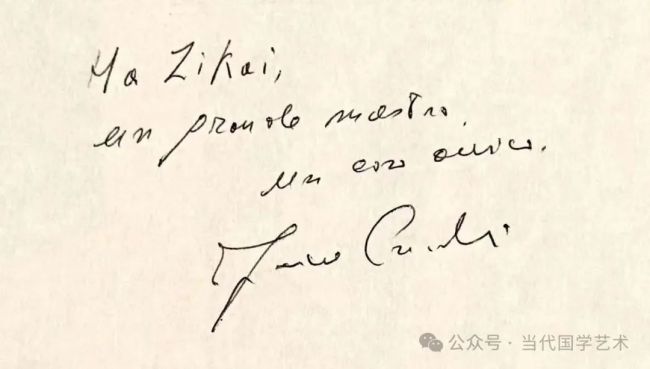 Ma Zikai,
un grande maestro.
un caro amico.
公众号 · 当代国学艺术